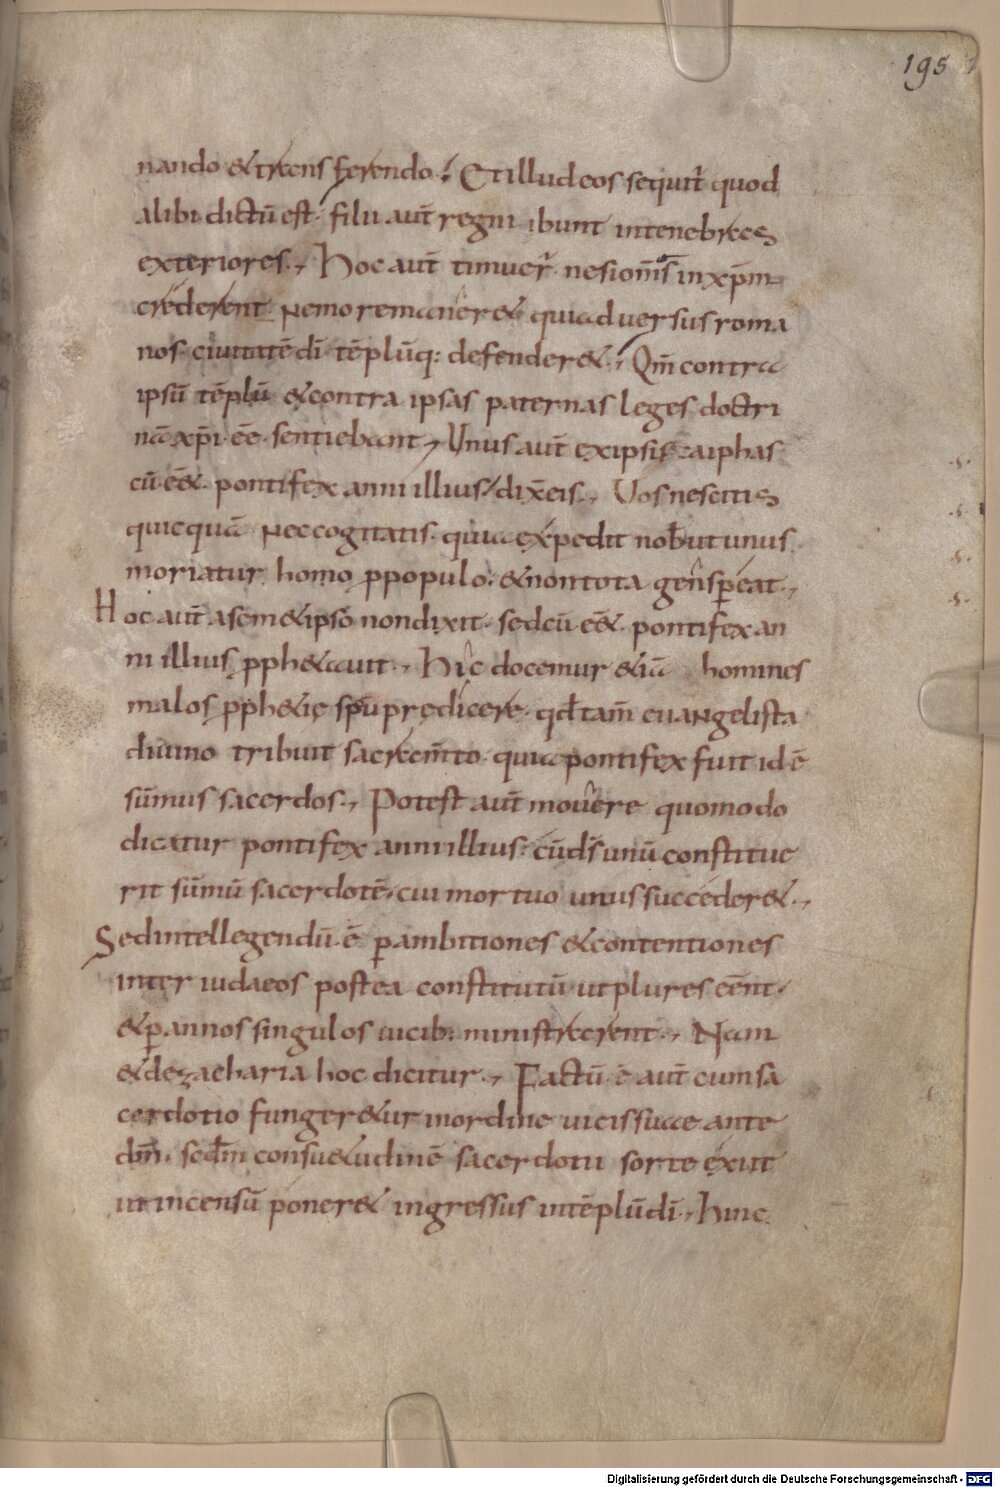 195
nando & transferendo; Et illud eos sequit̃ quod
alibi dictū est. filii aut̃ regni ibunt in tenebras
exteriores., Hoc aut̃ timuer̃. ne si om̃s in xp̄m
crederent. nemo remaner& qui adversus roma
nos. civitatē dī. tēplūq: defender&., Qm̄ contra
ipsū tēplū & contra ipsas paternas leges doctri
nā xp̄i. eē. sentiebant., Unus aut̃ ex ipsis caiphas
cū eē&. pontifex anni illius. dix̄ eis., Vos nescitis
quicquā nec cogitatis. quia expedit nob̄ ut unus
moriatur homo p̱ populo. & non tota gens p̱eat.,
Hoc aut̃ a sem&ipso non dixit. sed cū eē&. pontifex an
ni illius p̱ph&avit., Hic docemur &iā homines
malos p̱ph&ię spū prędicere. qd̄ tam̃ evangelista
divino tribuit sacram̃to. quia pontifex fuit id ē
sūmus sacerdos., Potest aut̃ movere quomodo
dicatur pontifex anni illius. cū d̄s unū constitue
rit sūmū sacerdotē. cui mortuo unus succeder&.,
Sed intellegendū ē p̱ ambitiones & contentiones
inter iudaeos postea constitutū ut plures eēnt.
& p̱ annos singulos vicib: ministrarent., Nam
& de zacharia hoc dicitur., Factū ē aut̃ cum sa
cerdotio funger&ur in ordine vicis suae ante
dm̄. scdm̄ consu&udinē sacerdotii sorte exiit
ut incensū poner& ingressus in tēplū dī., hinc
Digitalisierung gefördert durch die Deutsche Forschungsgemeinschaft - DFG